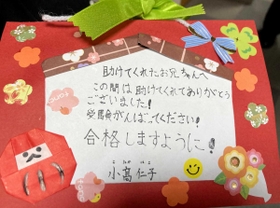 助けてくれたお兄ちゃんへ
この間は助けてくれてありがとう
ございました！
受験がんばってください！
合格しますように！
小高仁子